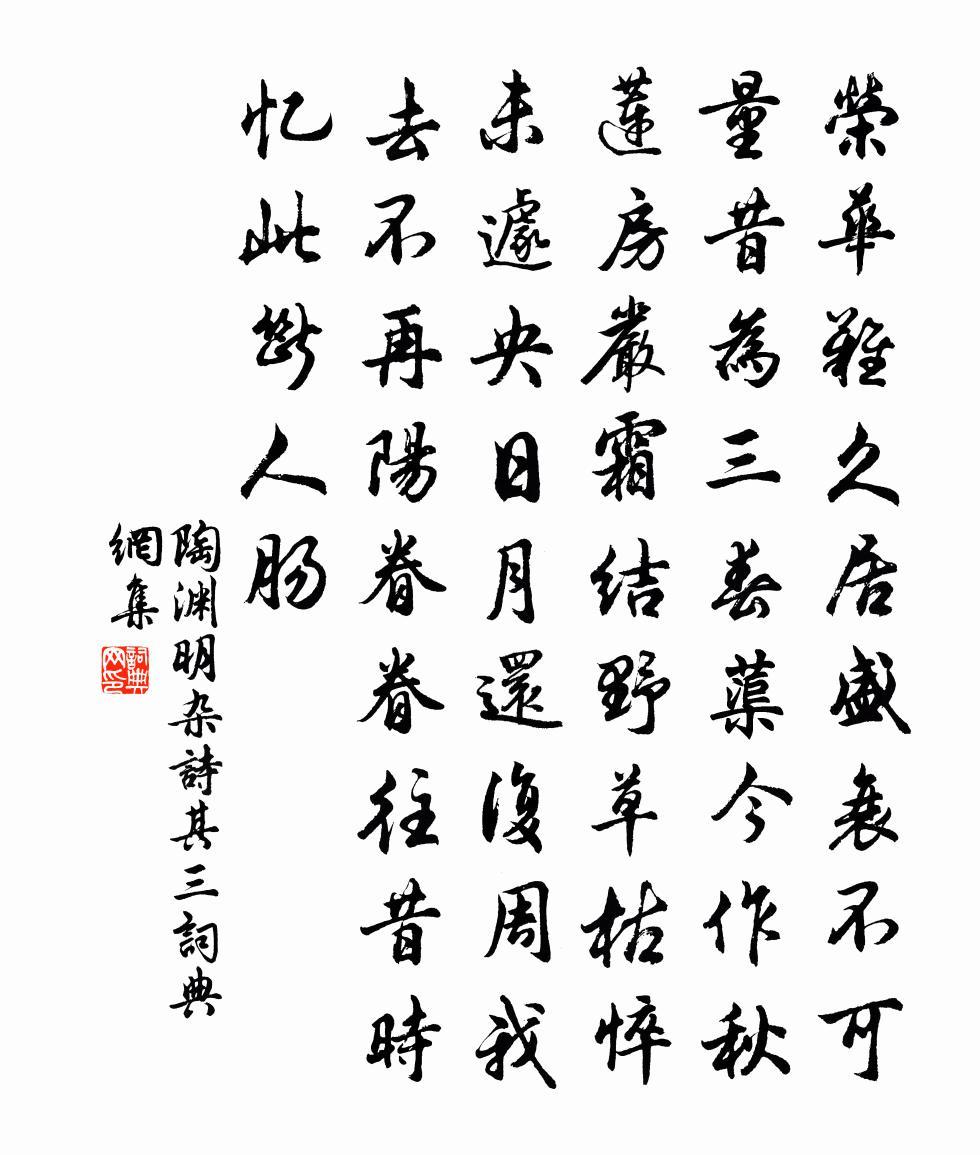 榮華難久居盛衰不可
量昔為三春蕖今作秋
蓮房嚴霜結野草枯悴
未遽央日月還復周我
去不再陽眷眷往昔時
忆此斷人肠
陶渊明杂詩其三詞典
網集
詞典网印